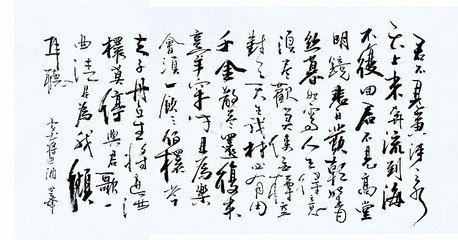 君不見黃河之水
天上來奔流到海
不復回君不見高堂
明鏡悲白髮朝如青
絲暮如雪人生得意
須盡歡莫使金樽空
對月天生我材必有用
千金散盡還復來
烹羊宰牛且為樂
會須一飲三百杯岑
夫子丹丘生將進酒
杯莫停與君歌一
曲請君為我傾
耳聽
將進酒